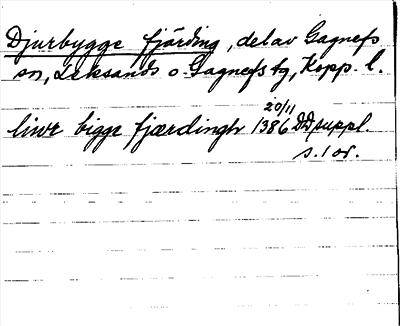 Djurbygge fjärding, del av Gagnefs
sn, Leksands o. Gagnefs tg, Kopp. l.
20/11
liwr bigge fjærdingh 1386 DD suppl.
s. 1 or.